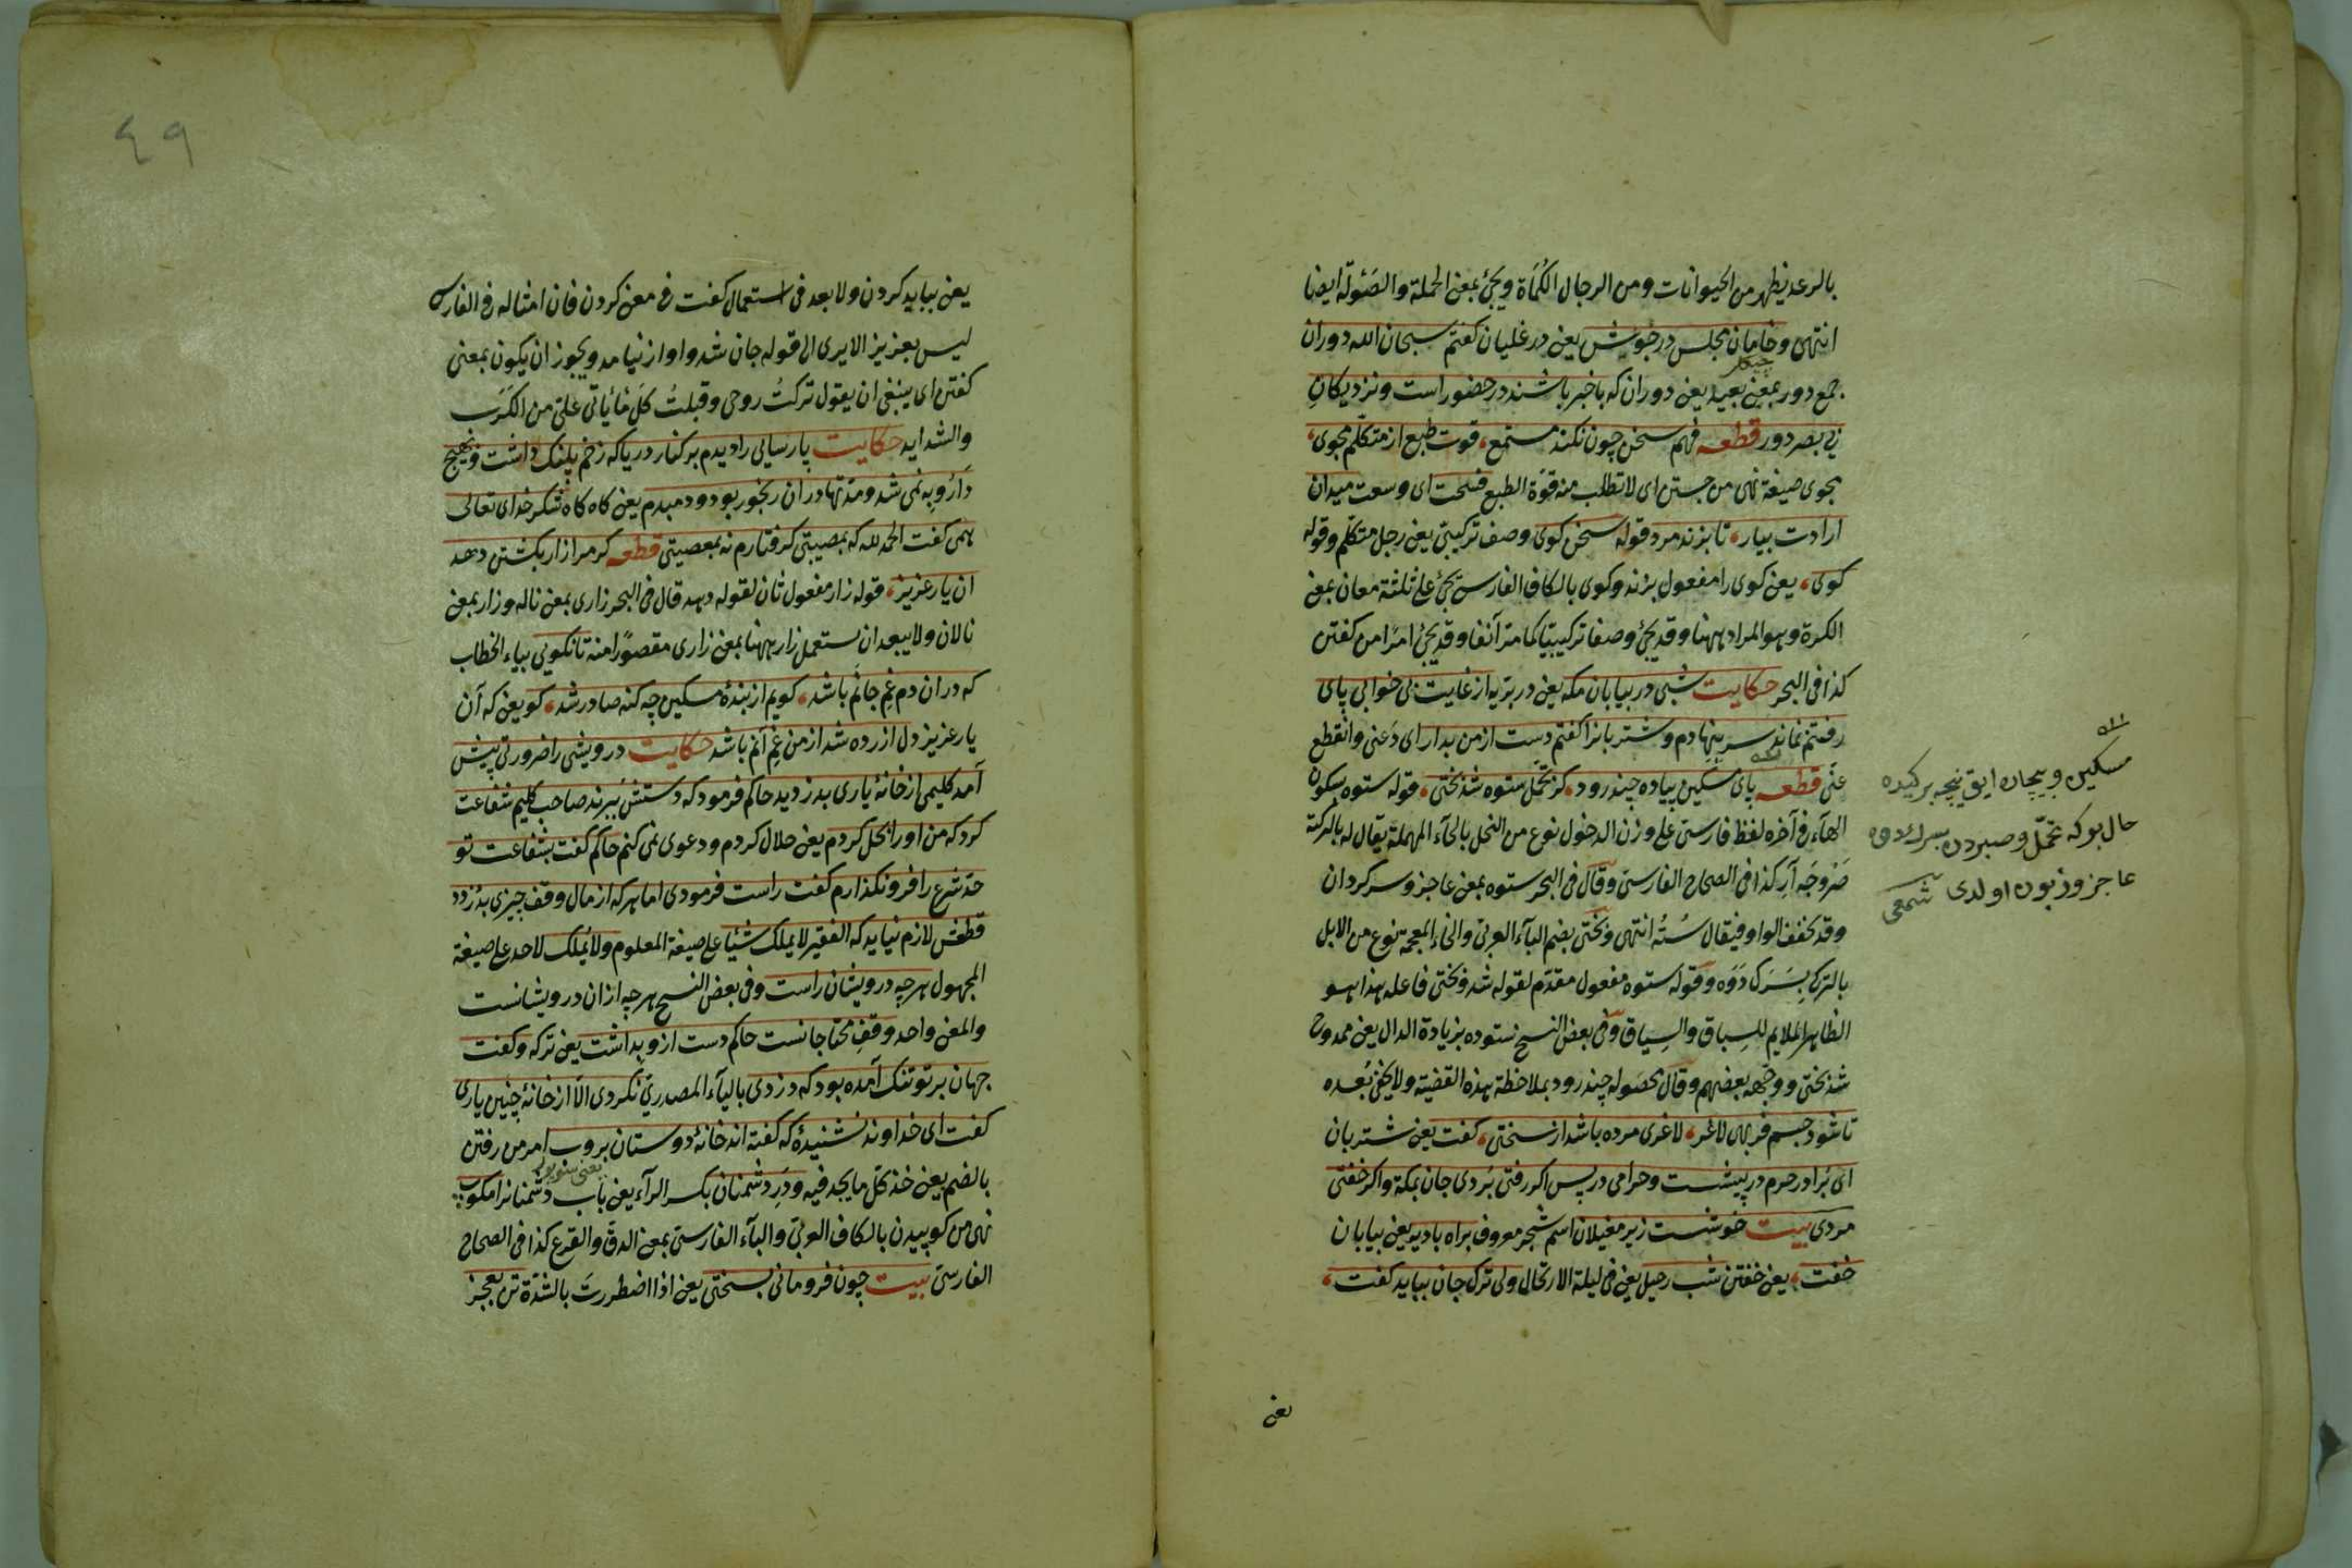 بالرعد يظهر من الحيوانات ومن الرجال الكُماة ويجئ بمعنى الحملة والصَئولة ايضا
انتهى وخامان مجلس در جوش يعنى در غليان كفتم سبحان الله دوران
جمع دور بمعنى بعيد يعنى دوران كه با خبر باشند در حضور است ونزديكانِ
بى بصر دور قطعه فهم سخن چون نكند مستمع، قوت طبع از متكلّم مجوى،
مجوى صيغة نهى من جستن اى لا تطلب منه قوّة الطبع فسحت اى وسعت ميدان
ارادت بيار، تا بزند مرد قوله سخن كوى وصف تركيبىّ يعنى رجل متكلّم وقوله
كوى، يعنى كوى را مفعول بزند وكوى بالكاف الفارسىّ يجئ على ثلثة معان بمعنى
الكرة وهو المراد ههنا وقد يجئ وصفا تركيبيّا كما مرّ آنفا وقد يجئ امرا من كفتن
كذا فى البحر حكايت شبى در بيابان مكه يعنى در بريّه از غايت بى خوابى پاى
رفتنم نماند سر بنهادم وشتر بانرا كفتم دست از من بدار اى دَعنى وانقطع
عنّى قطعه پاى مسكين پياده چند رود، كز تحمّل ستوه شد بختى، قوله ستوه بسكون
الهاء فى آخره لفظ فارسىّ على وزن الدخول نوع من النحل بالحآء المهملة يقال له بالتركيّة
صَروجَه آرِ كذا فى الصحاح الفارسىّ وقال فى البحر ستوه بمعنى عاجز وسركردان
وقد يخفف الواو فيقال سُتُه انتهى وبختى بضم البآء العربىّ والخاء المعجمة نوع من الابل
بالتركى بِسَرَك دَوَه وقوله ستوه مفعول مقدّم لقوله شد وبختى فاعله هذا هو
الظاهر الملايم للسِباق والسِياق وفى بعض النسخ ستوده بزيادة الدال يعنى ممدوح
شد بختى ووجّهه بعضهم وقال محصوله چند رود بملاحظة هذه القضيّة ولا يخفى بُعده
تا شود جسم فربهى لاغر، لاغرى مرده باشد از سختى، كفت يعنى شتربان
اى بُرادر حرم در پيشست وحرامى در پس اكر رفتى بُردى جان بمكة واكر خفتى
مردى بيت خوشست زير مغيلان اسم شجر معروف براه باديه يعنى بيابان
خفت، يعنى خفتن شب رحيل يعنى فى ليلة الارتحال ولى ترك جان ببايد كفت،
يعنى
مسكين وبيچاره ايق نيجه بر كيده
حال بوكه تحمّل وصبردن بسرك دوه
عاجز وزبون اولدى شمعى
٤٩
يعنى ببايد كردن ولا بعد فى استعمال كفت فى معنى كردن فان امثاله فى الفارسى
ليس بعزيز الا يرى الى قوله جان شد واواز نيامد ويجوز ان يكون بمعنى
كفتن اى ينبغى ان يقول تركتُ روحى وقبلتُ كلّ ما يأتى علىّ من الكَرَب
والشدايد حكايت پارسايى را ديدم بر كنار دريا كه زخم پلنك داشت وبهيچ
دارُو بِه نمى شد ومدّتها در ان رنجور بود ودمبدم يعنى كاه كاه شكر خداى تعالى
همى كفت الحمد لله كه بمصيبتى كرفتارم نه بمعصيتى قطعه كر مرا زار بكشتن دهد
ان يار عزيز، قوله زار مفعول ثان لقوله دهد قال فى البحر زارى بمعنى ناله وزار بمعنى
نالان ولا يبعد ان يستعمل زار ههنا بمعنى زارى مقصوًرا منه تا نكويى بياء الخطاب
كه در ان دم غمِ جانَم باشد، كويم از بندهٔ مسكين چه كنه صادر شد، كو يعنى كه آن
يار عزيز دل ازرده شد از من غمِ آنم باشد حكايت درويشى را ضرورتى پيش
آمد كليمى از خانهٔ يارى بدزديد حاكم فرمود كه دستش ببرند صاحب كليم شفاعت
كرد كه من او را بحل كردم يعنى حلال كردم ودعوى نمى كنم حاكم كفت بشفاعت تو
حدّ شرع را فرو نكذارم كفت راست فرمودى اما هر كه از مال وقف چيزى بدُزدد
قطعش لازم نيايد كه الفقير لا يملك شيئا على صيغة المعلوم ولا يُملك لاحد على صيغة
المجهول هر چه درويشان راست وفى بعض النسخ هر چه از ان درويشانست
والمعنى واحد وقفِ محتاجانست حاكم دست از و بداشت يعنى تركه وكفت
جهان بر تو تنك آمده بود كه دزدى باليآء المصدرىّ نكردى الّا از خانهٔ چنين يارى
كفت اى خداوند نشنيدهٔ كه كفته اند خانهٔ دوستان بروب امر من رفتن
بالضم يعنى خذ كلّ ما يجد فيه ودَرِ دشمنان بكسر الرآء يعنى باب دشمنانرا مكوب
نهى من كوپيدن بالكاف العربىّ والبآء الفارسىّ بمعنى الدقّ والقرع كذا فى الصحاح
الفارسىّ بيت چون فرومانى بسختى يعنى اذا اضطررتَ بالشدّة تن بعجز